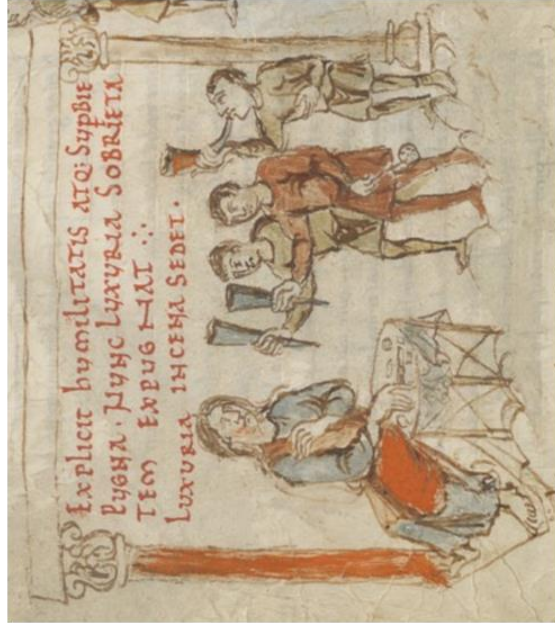 EXPLICIT hUMILITATIS ATQ: SUPBIE
PUGNA · NUNC LUXURIA SOBRIETA
TEM EXPUGNAT ∴
LUXURIA INCENA SEDET ·